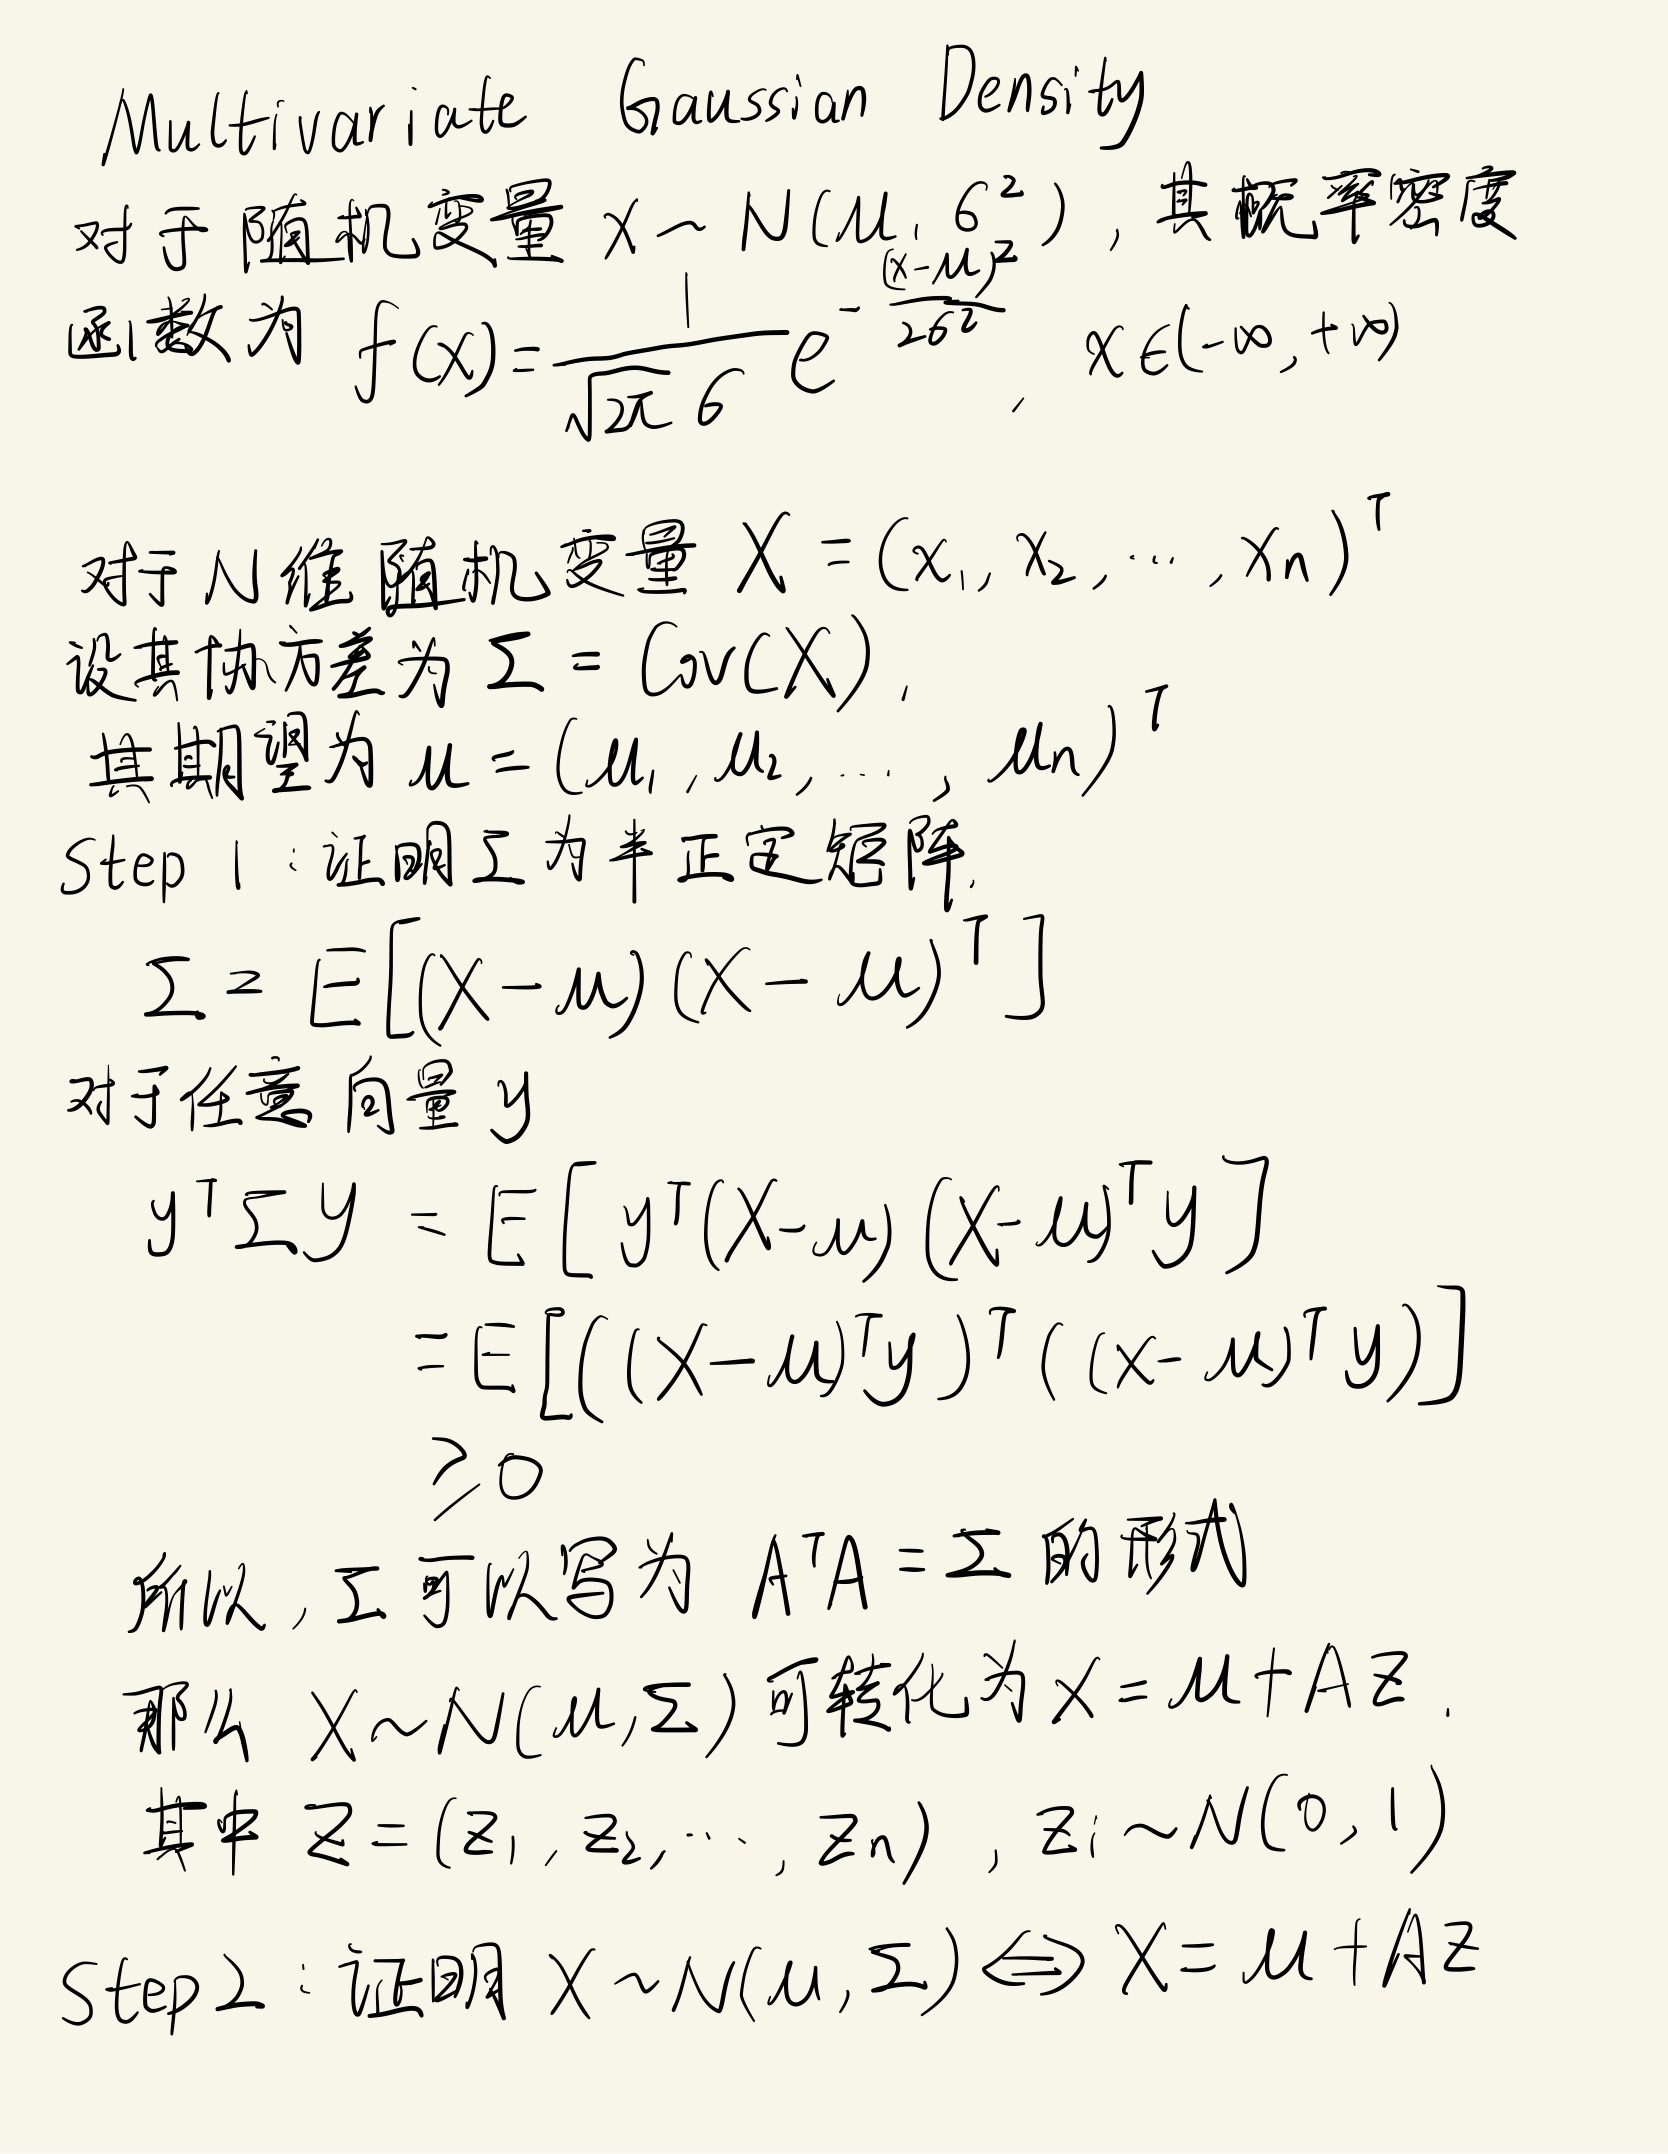 Multivariate Gaussian Density
对于随机变量 x ~ N(μ, σ²), 其概率密度
函数为 f(x) = 1/(√2π σ) e^(-(x-μ)²/(2σ²)), x∈(-∞, +∞)
对于N维随机变量 X = (x₁, x₂, ⋯, xn)ᵀ
设其协方差为 Σ = Cov(X),
其期望为 μ = (μ₁, μ₂, ..., μn)ᵀ
Step 1: 证明Σ为半正定矩阵.
Σ = E[(X-μ)(X-μ)ᵀ]
对于任意向量 y
yᵀΣy = E[yᵀ(X-μ)(X-μ)ᵀy]
= E[((X-μ)ᵀy)ᵀ((x-μ)ᵀy)]
≥0
所以, Σ可以写为 AᵀA = Σ 的形式
那么 X~N(μ,Σ) 可转化为 X = μ+AZ.
其中 Z = (z₁, z₂, ⋯, zn), zi ~ N(0, 1)
Step2: 证明 X~N(μ, Σ) ⇔ X = μ+AZ